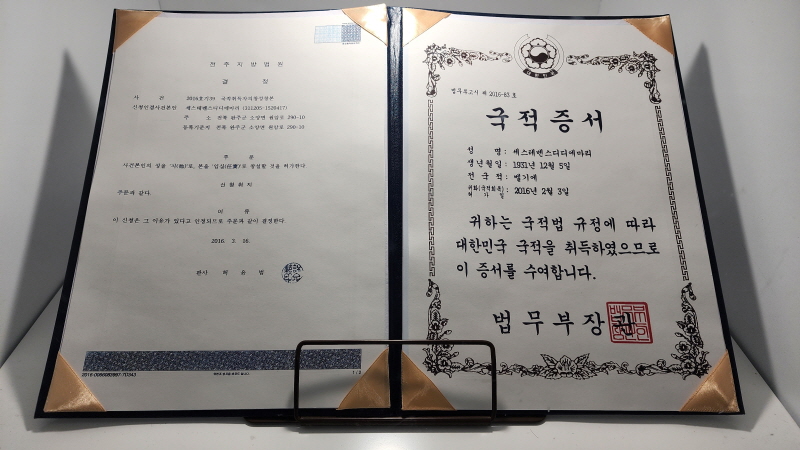 전주지방법원
결정
사 건 2016호기30 국적취득자의창성창본
신청인겸사건본인 세스테벤스디디에마리 (311205-1528417)
주 소 전북 완주군 소양면 원암로 290-10
등록기준지 전북 완주군 소양면 원암로 290-10
주 문
사건본인의 성을 '지(池)'로, 본을 '임실(任實)'로 창설할 것을 허가한다.
신청취지
주문과 같다.
이 유
이 신청은 그 이유가 있다고 인정되므로 주문과 같이 결정한다.
2016. 3. 16.
판사
1 / 2
법무부고시 제 2016-83 호
국적증서
성 명: 세스테벤스디디에마리
생년월일: 1931년 12월 5일
전 국 적: 벨기에
귀화(국적회복)허가일: 2016년 2월 3일
귀하는 국적법 규정에 따라
대한민국 국적을 취득하였으므로
이 증서를 수여합니다.
법무부장관